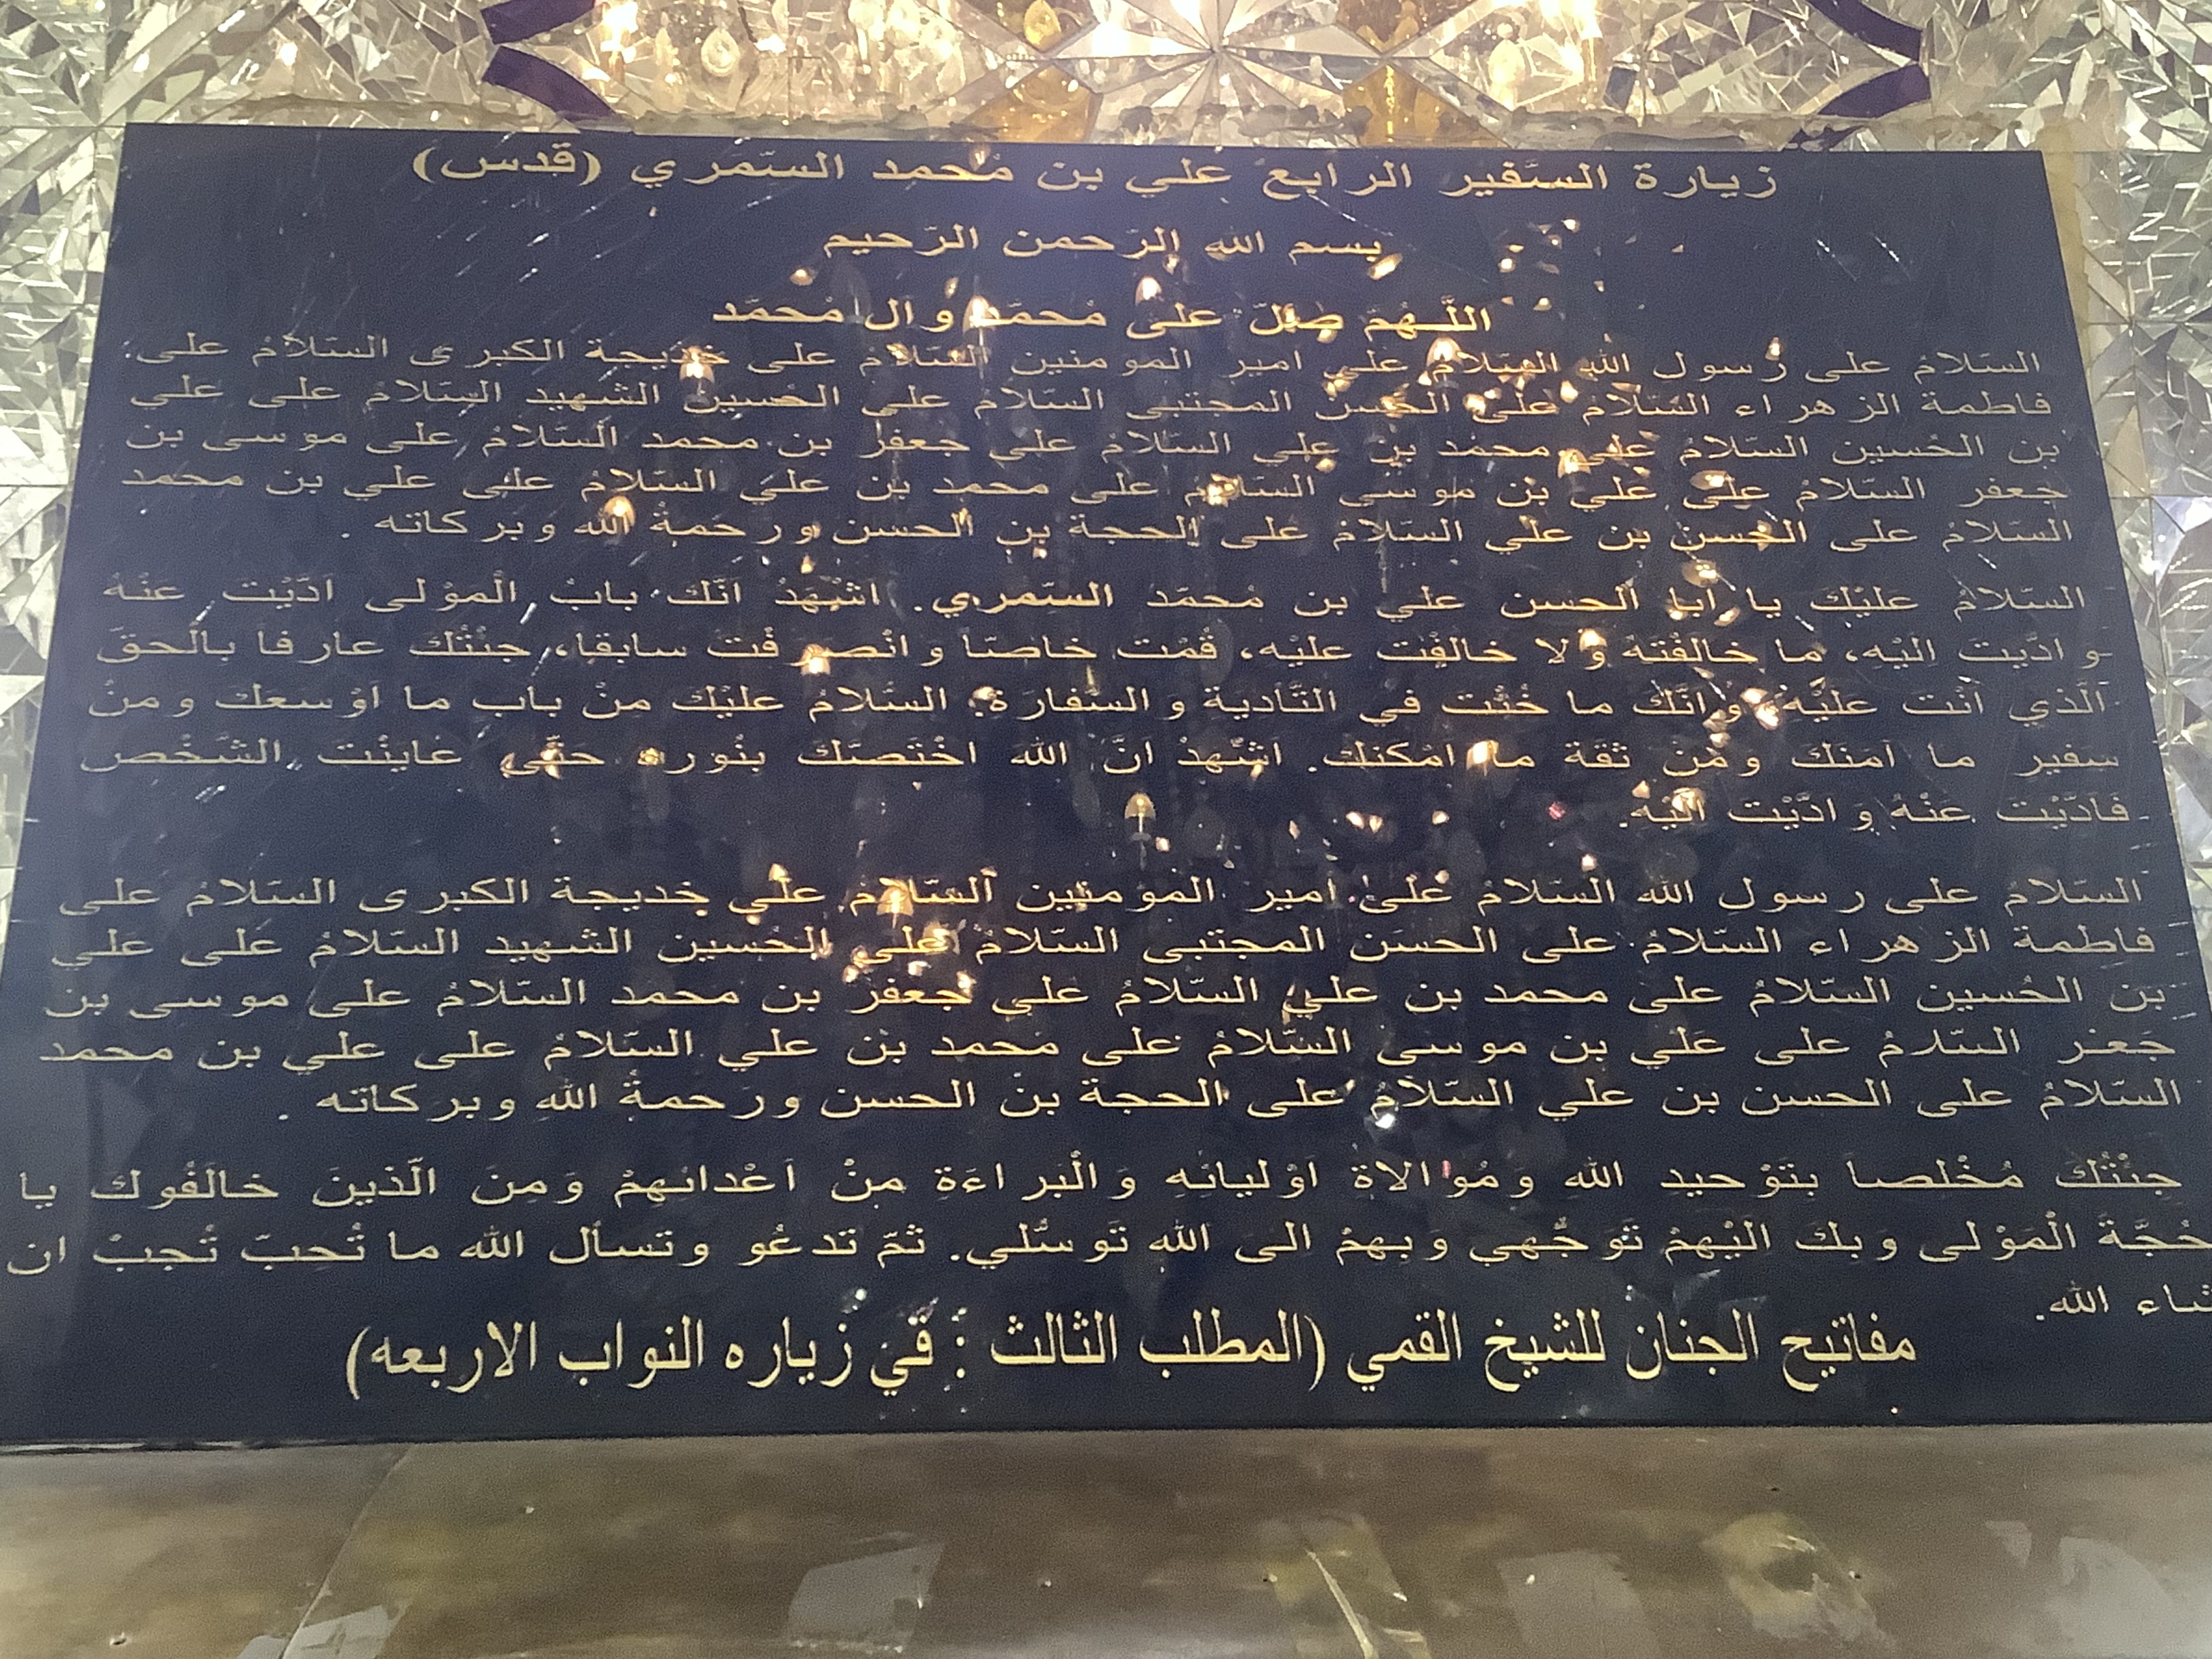 زيارة السَّفير الرابع علي بن مُحمد السّمري (قدس)
بسم الله الرّحمن الرّحيم
اللَّهُمَ صلّ على مُحمّد وآل مُحمّد
السّلامُ على رَسول الله السّلامُ على امير المومنين السّلامُ على خديجة الكبرى السّلامُ على
فاطمة الزهراء السّلامُ على الحَسن المجتبى السّلامُ على الحُسين الشهيد السّلامُ على علي
بن الحُسين السّلامُ على محمد بن علي السّلامُ على جعفر بن محمد السّلامُ على موسى بن
جعفر السّلامُ على علي بن موسى السّلامُ على محمد بن علي السّلامُ على علي بن محمد
السّلامُ على الحسن بن علي السّلامُ على الحجة بن الحسن ورحمةُ الله وبركاته .
السّلامُ عليْك يا ابا الحسن علي بن مُحمّد السّمري. اشْهَدُ انّك بابُ الْموْلى ادّيْت عنْهُ
و ادّيت اليْه، ما خالفْتهُ و لا خالفْت عليْه، قُمْت خاصّا و انْصرفْت سابقا، جئْتُك عارفا بالْحقّ
الّذي انْت عليْه، و انّك ما خُنْت في التّادية و السّفارة. السّلامُ عليْك منْ باب ما اوْسعك و منْ
سفير ما آمنك و منْ ثقة ما امْكنك. اشْهدُ انّ الله اخْتصّك بنُوره حتّى عاينْت الشّخْص
فادّيْت عنْهُ و ادّيْت اليْه.
السّلامُ على رسول الله السّلامُ على امير المومنين السّلامُ على خديجة الكبرى السّلامُ على
فاطمة الزهراء السّلامُ على الحسن المجتبى السّلامُ على الحُسين الشهيد السّلامُ على علي
بن الحُسين السّلامُ على محمد بن علي السّلامُ على جعفر بن محمد السّلامُ على موسى بن
جَعفر السّلامُ على علي بن موسى السّلامُ على محمد بن علي السّلامُ على علي بن محمد
السّلامُ على الحسن بن علي السّلامُ على الحجة بن الحسن ورحمةُ الله وبركاته .
جئْتُك مُخْلصا بتَوْحيد الله وَمُوالاة اوْليائه وَالْبراءَة منْ اَعْدائهمْ وَمنَ الّذينَ خالَفُوك يا
حُجّةَ الْمَوْلى وبكَ اليْهمْ تَوَجُّهي وبهمْ الى الله تَوسُّلي. ثمّ تدعُو وتسأل الله ما تُحبّ تُجبْ ان
شاء الله.
مفاتيح الجنان للشيخ القمي (المطلب الثالث : في زياره النواب الاربعه)